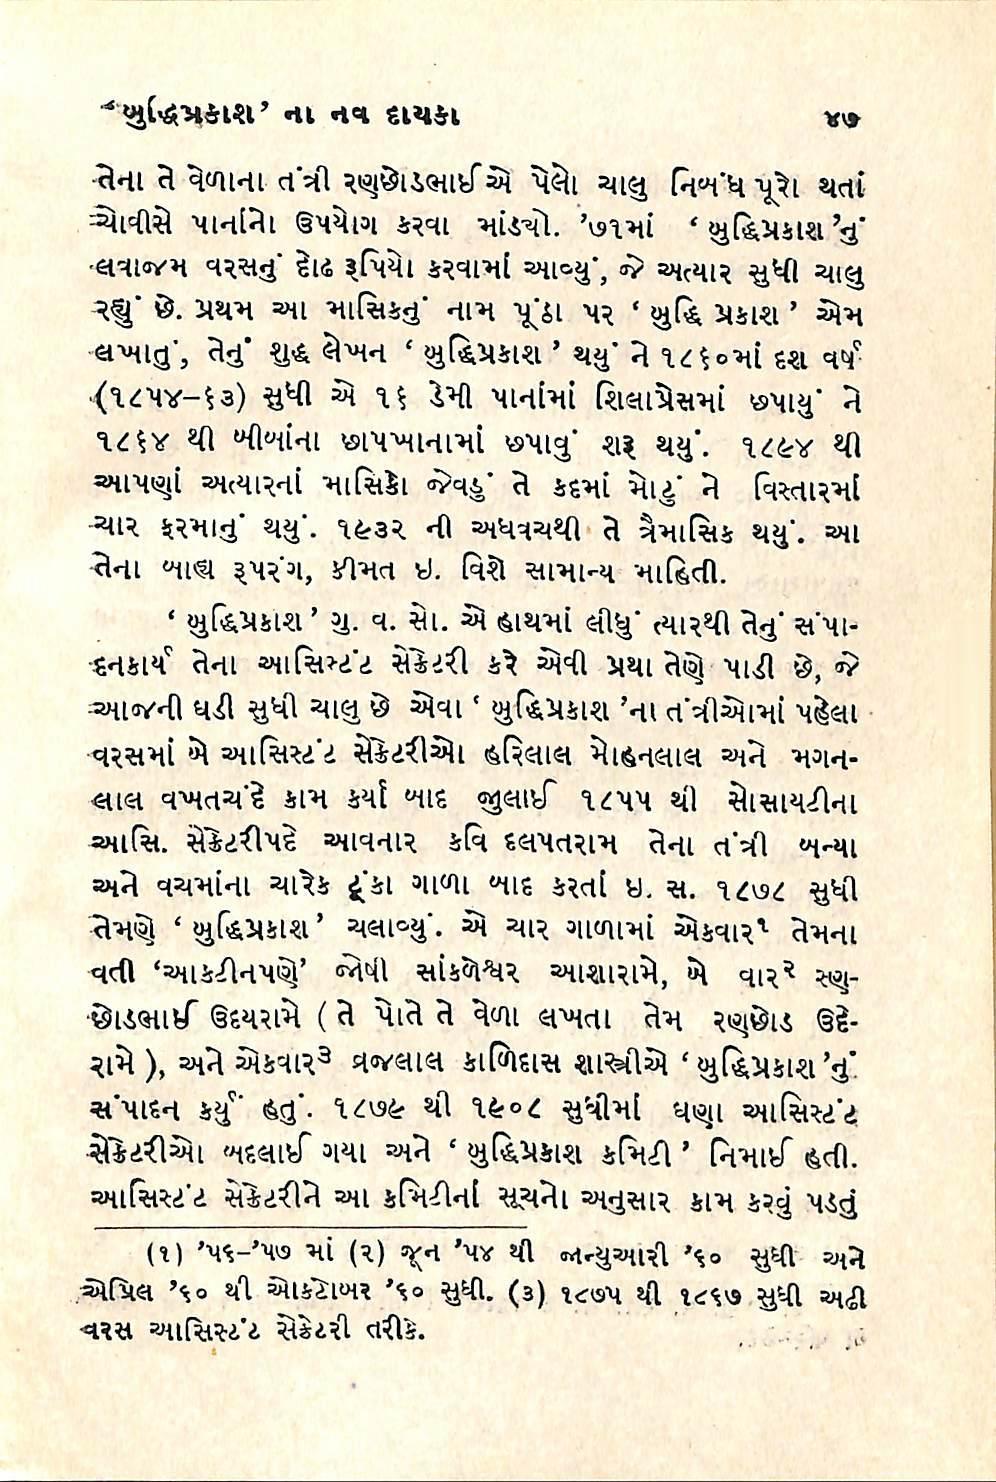 ‘બુદ્ધિપ્રકાશ’ ના નવ દાયકા ૪૭
તેના તે વેળાના તંત્રી રણછોડભાઈએ પેલો ચાલુ નિબંધ પૂરો થતાં
ચોવીસે પાનાંનો ઉપયોગ કરવા માંડ્યો. ’૭૧માં ‘બુદ્ધિપ્રકાશ’નું
લવાજમ વરસનું દોઢ રૂપિયો કરવામાં આવ્યું, જે અત્યાર સુધી ચાલુ
રહ્યું છે. પ્રથમ આ માસિકનું નામ પૂંઠા પર ‘બુદ્ધિ પ્રકાશ’ એમ
લખાતું, તેનું શુદ્ધ લેખન ‘બુદ્ધિપ્રકાશ’ થયું ને ૧૮૬૦માં દશ વર્ષ
(૧૮૫૪–૬૩) સુધી એ ૧૬ ડેમી પાનાંમાં શિલાપ્રેસમાં છપાયું ને
૧૮૬૪ થી બીબાંના છાપખાનામાં છપાવું શરૂ થયું. ૧૮૯૪ થી
આપણાં અત્યારનાં માસિકો જેવડું તે કદમાં મોટું ને વિસ્તારમાં
ચાર ફરમાનું થયું. ૧૯૩૨ ની અધવચથી તે ત્રૈમાસિક થયું. આ
તેના બાહ્ય રૂપરંગ, કીમત ઇ. વિશે સામાન્ય માહિતી.
‘બુદ્ધિપ્રકાશ’ ગુ. વ. સો. એ હાથમાં લીધું ત્યારથી તેનું સંપા-
દનકાર્ય તેના આસિસ્ટંટ સેક્રેટરી કરે એવી પ્રથા તેણે પાડી છે, જે
આજની ઘડી સુધી ચાલુ છે એવા ‘બુદ્ધિપ્રકાશ’ના તંત્રીઓમાં પહેલા
વરસમાં બે આસિસ્ટંટ સેક્રેટરીઓ હરિલાલ મોહનલાલ અને મગન-
લાલ વખતચંદે કામ કર્યા બાદ જુલાઈ ૧૮૫૫ થી સોસાયટીના
આસિ. સેક્રેટરીપદે આવનાર કવિ દલપતરામ તેના તંત્રી બન્યા
અને વચમાંના ચારેક ટૂંકા ગાળા બાદ કરતાં ઇ. સ. ૧૮૭૮ સુધી
તેમણે ‘બુદ્ધિપ્રકાશ’ ચલાવ્યું. એ ચાર ગાળામાં એકવાર૧ તેમના
વતી ‘આકટીનપણે’ જોષી સાંકળેશ્વર આશારામે, બે વાર૨ રણ-
છોડભાઈ ઉદયરામે (તે પોતે તે વેળા લખતા તેમ રણછોડ ઉદે-
રામે), અને એકવાર૩ વ્રજલાલ કાળિદાસ શાસ્ત્રીએ ‘બુદ્ધિપ્રકાશ’નું
સંપાદન કર્યું હતું. ૧૮૭૯ થી ૧૯૦૮ સુધીમાં ઘણા આસિસ્ટંટ
સેક્રેટરીઓ બદલાઈ ગયા અને ‘બુદ્ધિપ્રકાશ કમિટી’ નિમાઈ હતી.
આસિસ્ટંટ સેક્રેટરીને આ કમિટીનાં સૂચનો અનુસાર કામ કરવું પડતું
(૧) ’૫૬–’૫૭ માં (૨) જૂન ’૫૪ થી જાન્યુઆરી ’૬૦ સુધી અને
એપ્રિલ ’૬૦ થી ઓકટોબર ’૬૦ સુધી. (૩) ૧૮૭૫ થી ૧૮૬૭ સુધી અઢી
વરસ આસિસ્ટંટ સેક્રેટરી તરીકે.